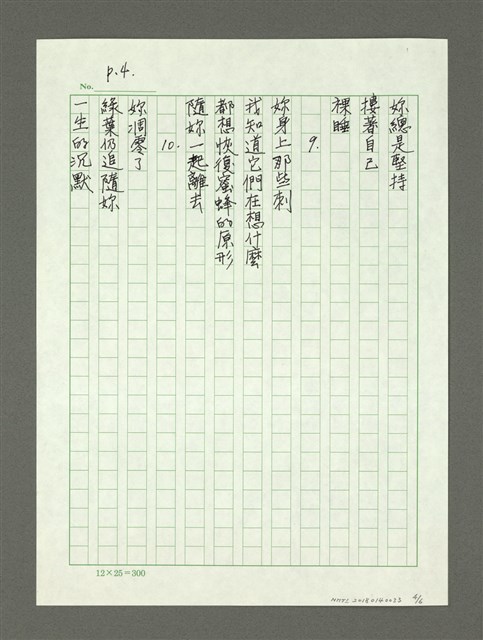 p.4.
No.
妳總是堅持
摟著自己
裸睡
9.
妳身上那些刺
我知道它們在想什麼
都想恢復蜜蜂的原形
隨妳一起離去
10.
妳凋零了
綠葉仍追隨妳
一生的沉默
12×25=300
NMTL 20150140023 4/6